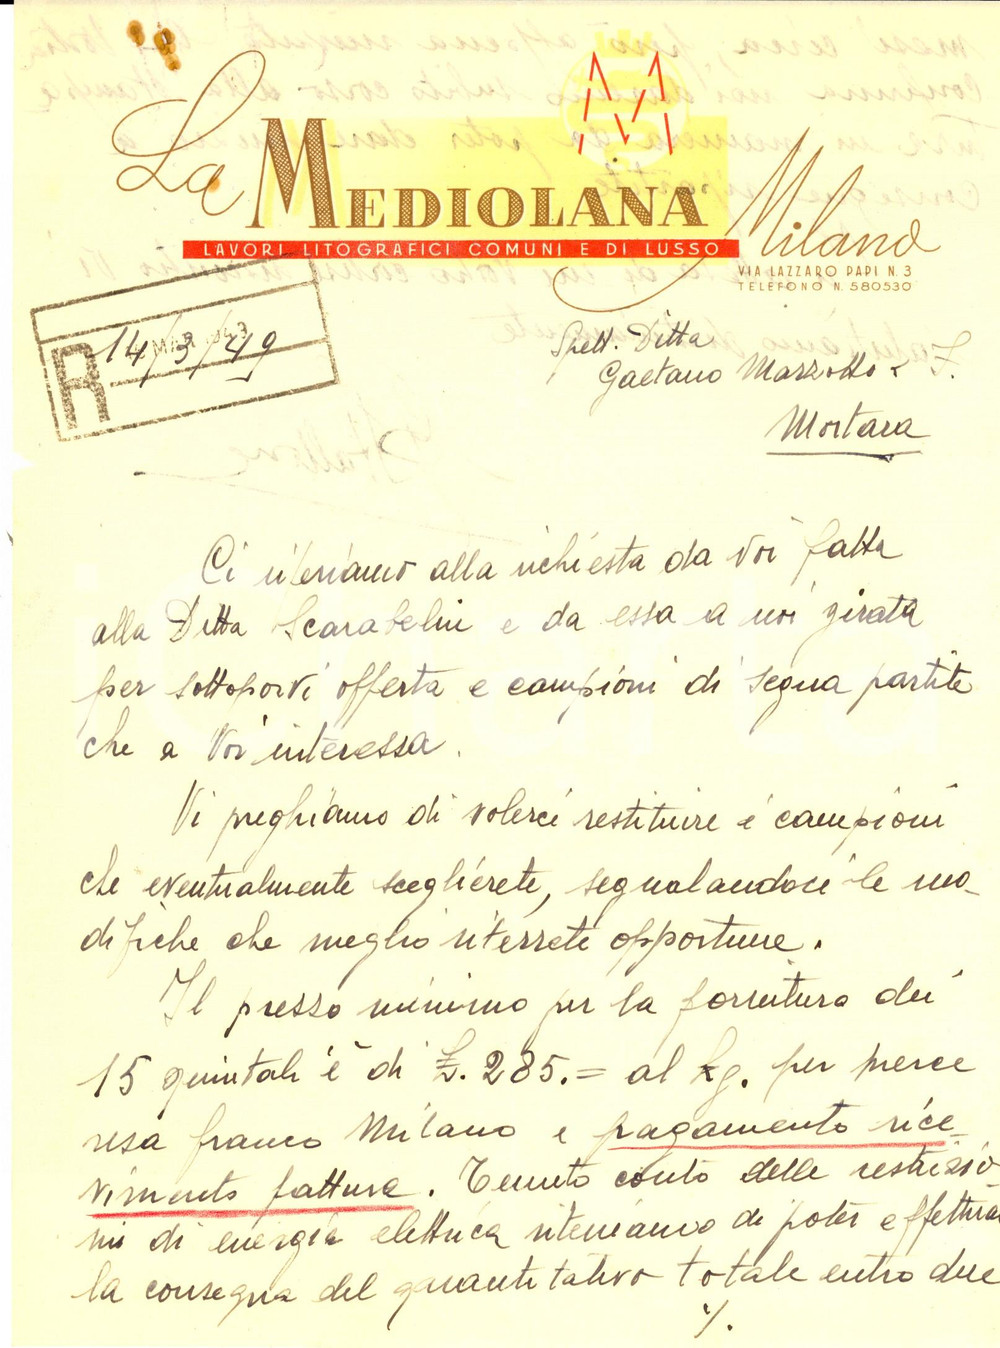 La MEDIOLANA Milano
LAVORI LITOGRAFICI COMUNI E DI LUSSO
VIA LAZZARO PAPI N. 3
TELEFONO N. 580530
R 14/3/49
Spett. Ditta
Gaetano Marzotto & F.
Mortara
Ci riferiamo alla richiesta da Voi fatta
alla Ditta Scarabelin e da essa a noi girata
per sottoporvi offerta e campioni di segna partite
che a Voi interessa.
Vi preghiamo di volerci restituire i campioni
che eventualmente sceglierete, segnalandoci le mo-
difiche che meglio riterrete opportune.
Il prezzo minimo per la fornitura dei
15 quintali è di £. 285.= al kg. per merce
resa franco Milano e pagamento rice-
vimento fattura. Tenuto conto delle restrizio
ni di energia elettrica riteniamo di poter effettuar
la consegna del quantitativo totale entro due
./.